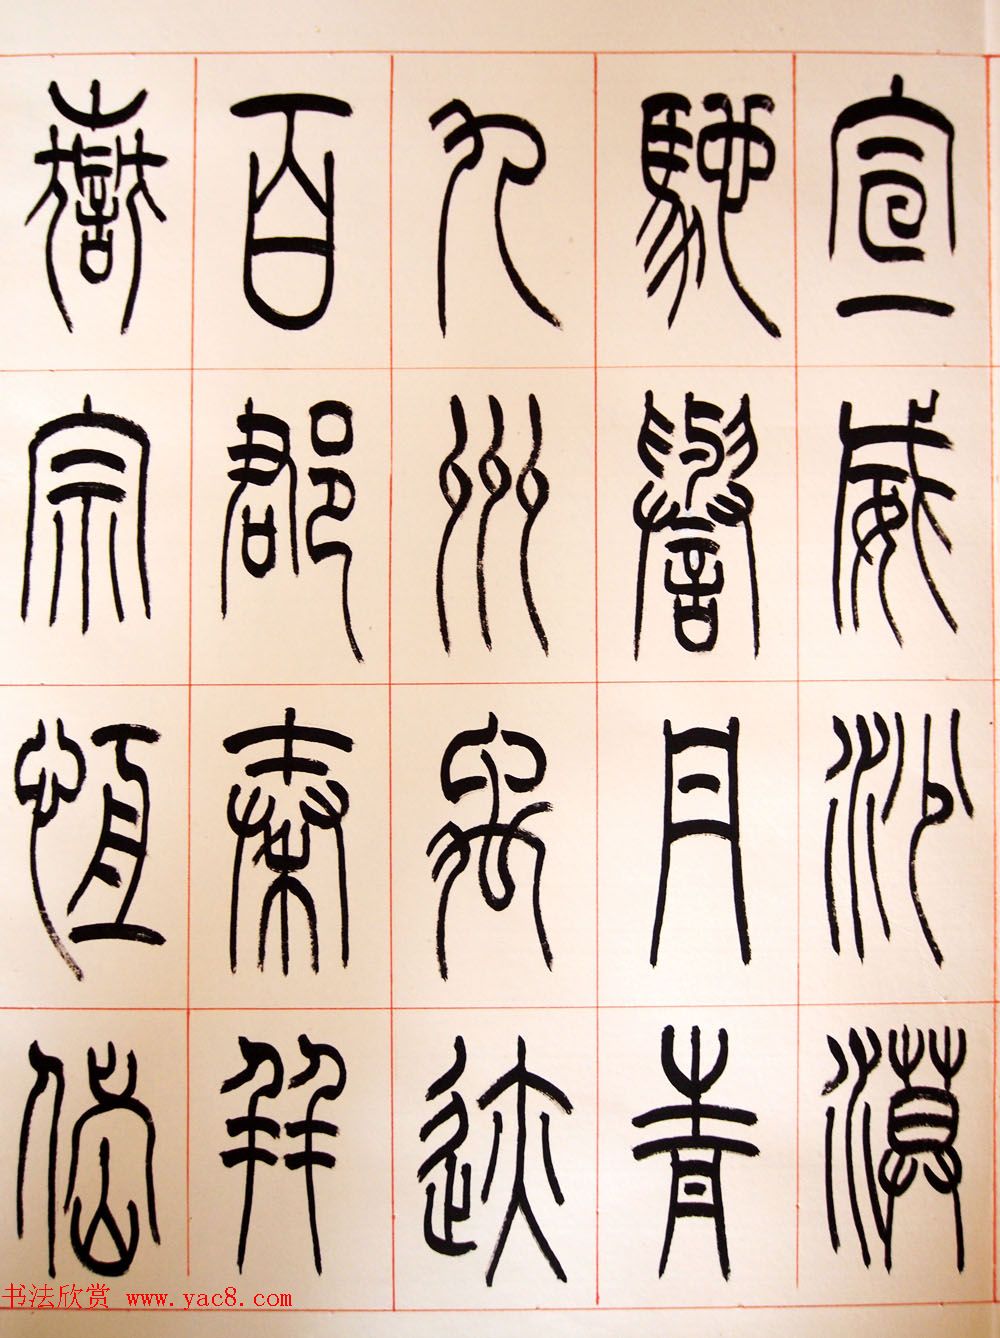 宣威沙漠
馳譽丹青
九州禹迹
百郡秦并
嶽宗恆岱
书法欣赏 www.yac8.com